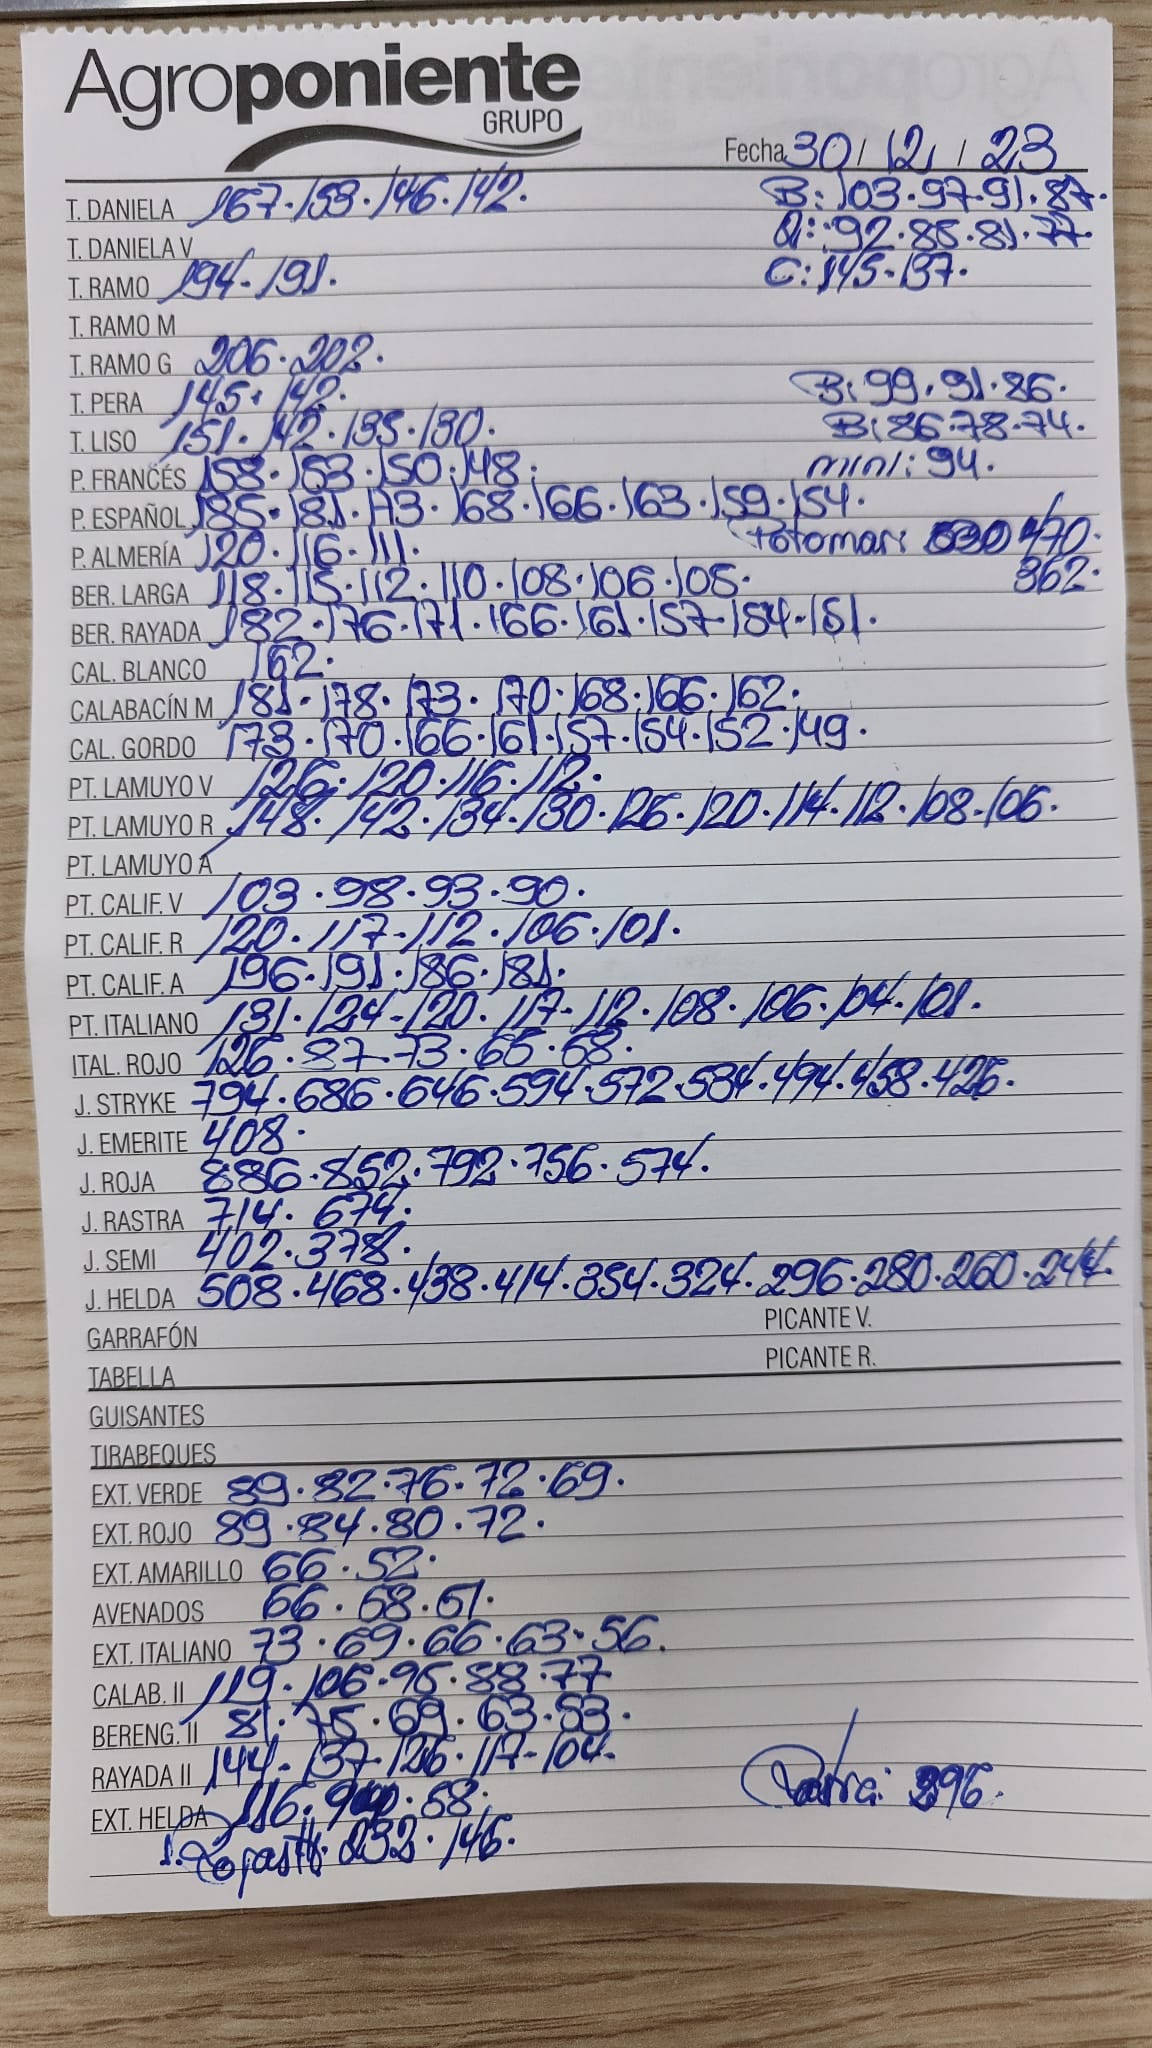 Agroponiente
GRUPO
Fecha 30 / 12 / 23
T. DANIELA 167·153·146·142. B: 103·97·91·87.
T. DANIELA V Q: 92·85·81·77.
T. RAMO 194·191. C: 145·137.
T. RAMO M
T. RAMO G 206·202.
T. PERA 145·142. B: 99·91·86.
T. LISO 151·142·135·130. B: 86·78·74.
P. FRANCÉS 158·153·150·148. mini: 94.
P. ESPAÑOL 185·181·173·168·166·163·159·154.
P. ALMERÍA 120·116·111. 530 470.
BER. LARGA 118·115·112·110·108·106·105. 362.
BER. RAYADA 182·176·171·166·161·157·154·151.
CAL. BLANCO 162.
CALABACÍN M 181·178·173·170·168·166·162.
CAL. GORDO 173·170·166·161·157·154·152·149.
PT. LAMUYO V 126·120·116·112.
PT. LAMUYO R 148·142·134·130·126·120·114·112·108·106.
PT. LAMUYO A
PT. CALIF. V 103·98·93·90.
PT. CALIF. R 120·117·112·106·101.
PT. CALIF. A 196·191·186·181.
PT. ITALIANO 131·124·120·117·112·108·106·104·101.
ITAL. ROJO 126·87·73·65·68.
J. STRYKE 794·686·646·594·572·534·494·458·426.
J. EMERITE 408.
J. ROJA 886·852·792·756·574.
J. RASTRA 714·674.
J. SEMI 402·378.
J. HELDA 508·468·438·414·354·324·296·280·260·244.
GARRAFÓN PICANTE V.
TABELLA PICANTE R.
GUISANTES
TIRABEQUES
EXT. VERDE 89·82·76·72·69.
EXT. ROJO 89·84·80·72.
EXT. AMARILLO 66·52.
AVENADOS 66·58·51.
EXT. ITALIANO 73·69·66·63·56.
CALAB. II 119·106·95·88·77
BERENG. II 81·75·69·63·53.
RAYADA II 144·137·126·117·104.
EXT. HELDA 116· ·58. 396.
232·146.